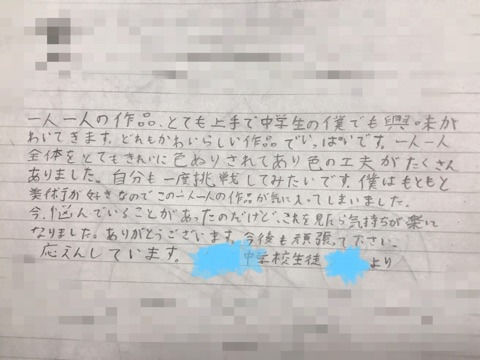 一人一人の作品、とても上手で中学生の僕でも興味が
わいてきます。どれもかわいらしい作品でいっぱいです。一人一人
全体をとてもきれいに色ぬりされてあり色の工夫がたくさん
ありました。自分も一度挑戦してみたいです。僕はもともと
美術が好きなのでこの一人一人の作品が気に入ってしまいました。
今、悩んでいることがあったのだけど、これを見たら気持ちが楽に
なりました。ありがとうございます。今後も頑張って下さい。
応えんしています。 中学校生徒 より